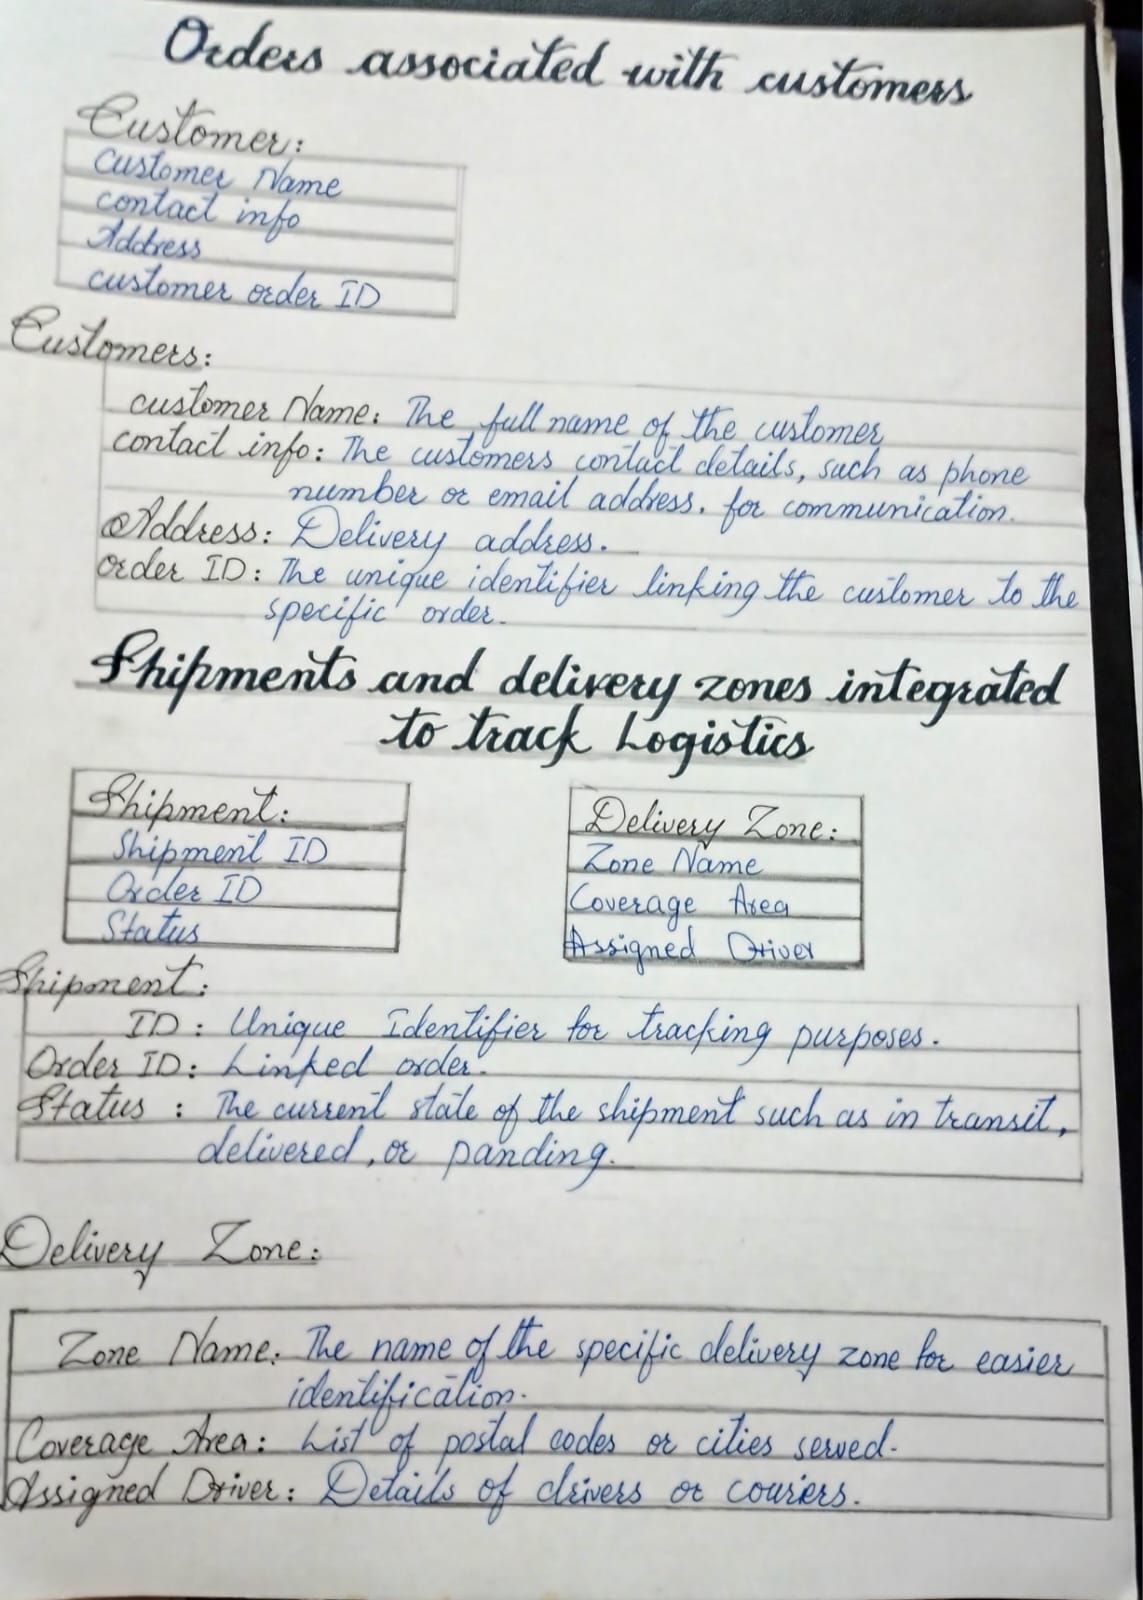 Orders associated with customers
Customer:
Customer Name
contact info
Address
customer order ID
Customers:
customer Name: The full name of the customer
contact info: The customers contact details, such as phone
number or email address. for communication.
Address: Delivery address.
order ID: The unique identifier linking the customer to the
specific order.
Shipments and delivery zones integrated
to track Logistics
Shipment:
Shipment ID
Order ID
Status
Delivery Zone:
Zone Name
Coverage Area
Assigned Driver
Shipment:
ID: Unique Identifier for tracking purposes.
Order ID: Linked order.
Status: The current state of the shipment such as in transit,
delivered, or panding.
Delivery Zone:
Zone Name: The name of the specific delivery zone for easier
identification.
Coverage Area: List of postal codes or cities served.
Assigned Driver: Details of drivers or couriers.